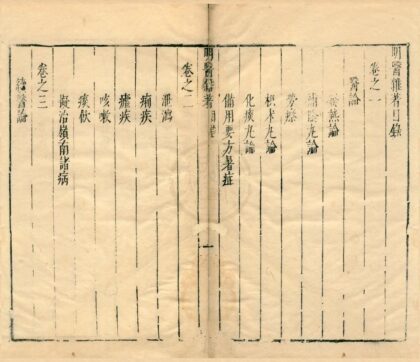 明醫雜著目錄
卷之一
醫論
發熱論
補陰丸論
勞瘵
枳朮丸論
化痰丸論
備用要方暑疰
明醫雜著目錄
一
卷之二
泄瀉
痢疾
瘧疾
咳嗽
痰飲
擬治嶺南諸病
卷之三
續醫論